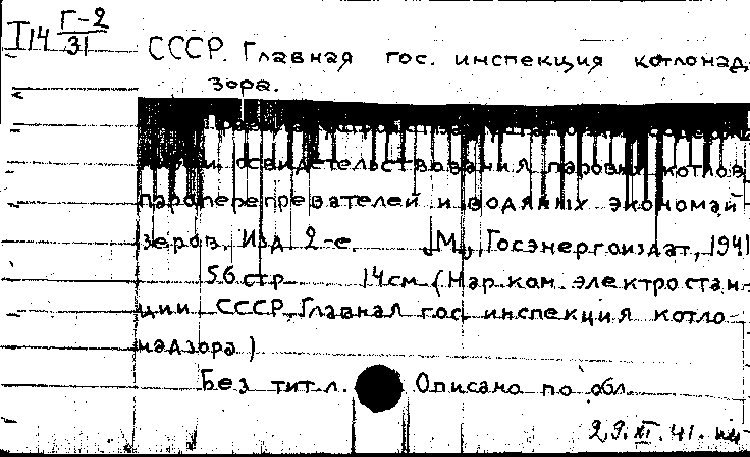 Т14 Г-2
31
СССР. Главная гос. инспекция котлонад
зора.
Правила устройства, установки, содержа
ния и освидетельствования паровых котлов,
пароперегревателей и водяных экономай
зеров. Изд. 2-е. [М.], Госэнергоиздат, 1941
56 стр. 14 см (Нар. ком. электростан-
ции СССР. Главная гос. инспекция котло-
надзора)
Без тит. л. Описано по обл.
29.XI.41.